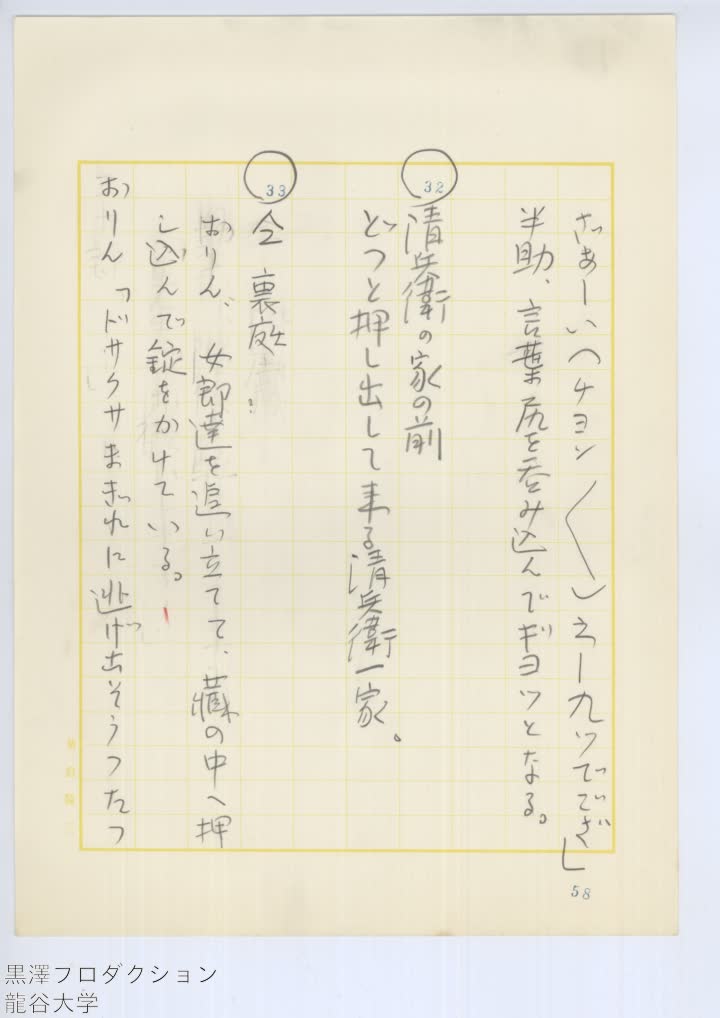 ざぁーい（チヨン〱）えー九ツでござ」
半助、言葉尻を呑み込んでギヨツとなる。
32
清兵衛の家の前
どつと押し出して来る清兵衛一家。
33
仝 裏庭
おりん、女郎達を追い立てて、蔵の中へ押
し込んで錠をかけている。
おりん「ドサクサまぎれに逃げ出そうつたつ
58
黒澤プロダクション
龍谷大学